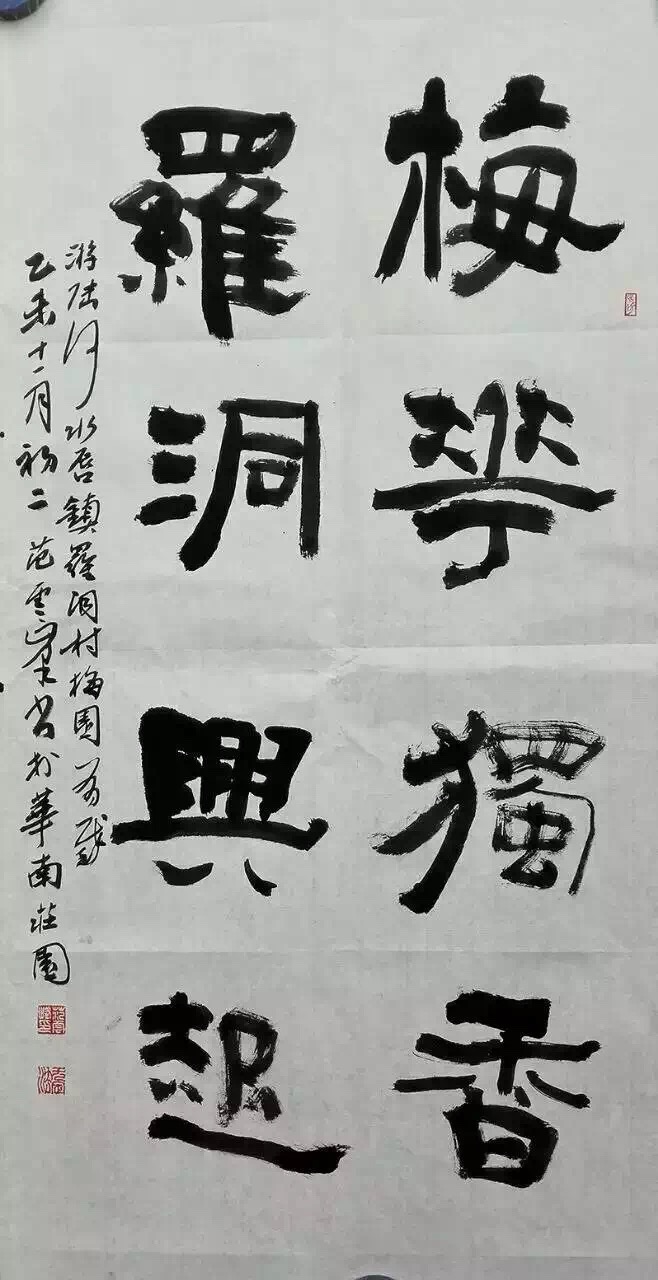 梅華獨香
羅洞興起
游陆河水唇鎮羅洞村梅園有感
乙未十一月初二范雲寨书於華南莊園